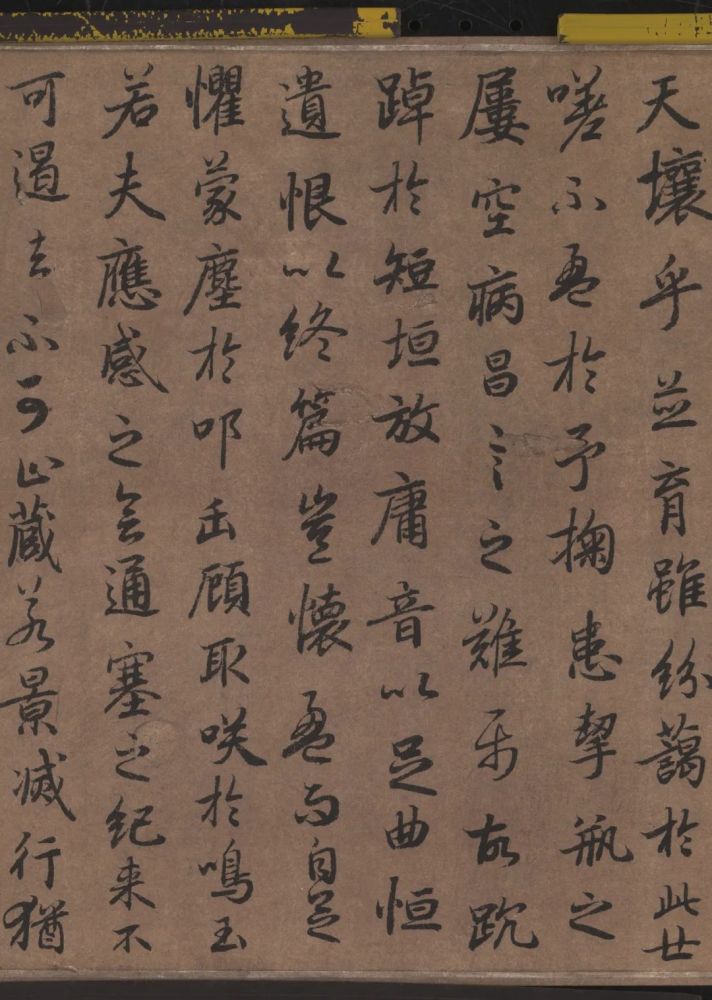 天壤乎並育雖紛藹於此世
嗟不盈於予掬患挈瓶之
屢空病昌言之難屬故踸
踔於短垣放庸音以足曲恒
遺恨以終篇豈懷盈而自足
懼蒙塵於叩缶顧取咲於鳴玉
若夫應感之會通塞之紀来不
可遏去不可止蔵若景滅行猶